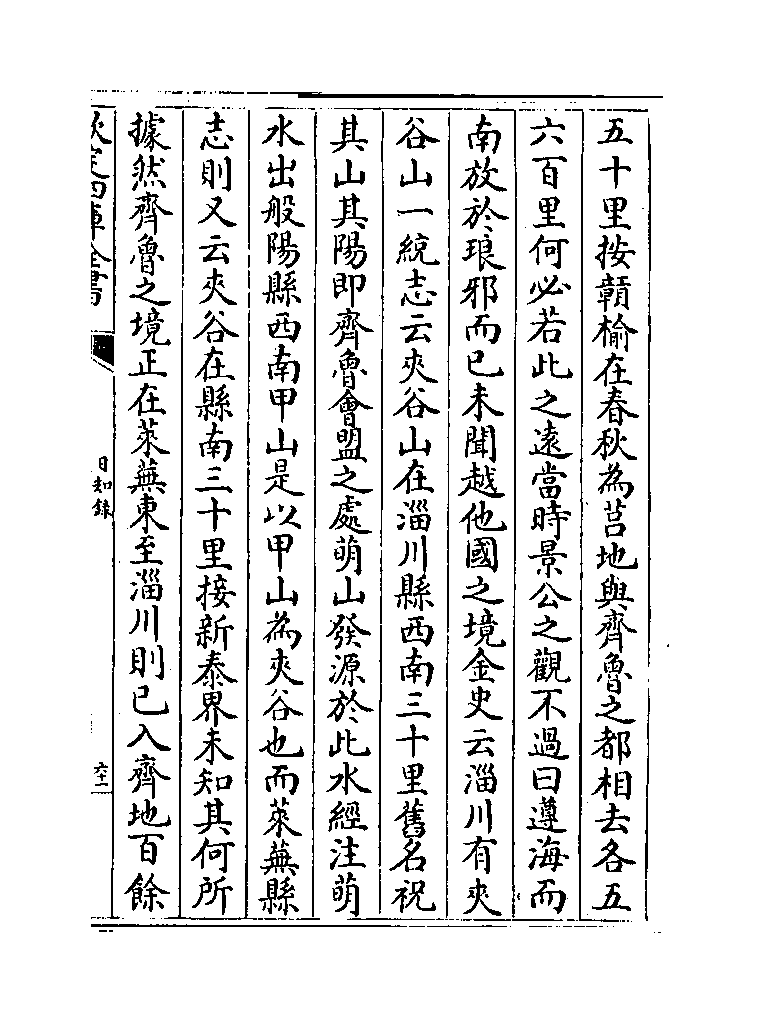 五十里按贛榆在春秋為莒地與齊魯之都相去各五
六百里何必若此之遠當時景公之觀不過曰遵海而
南放於琅邪而已未聞越他國之境金史云淄川有夾
谷山一統志云夾谷山在淄川縣西南三十里舊名祝
其山其陽即齊魯會盟之處萌山發源於此水經注萌
水出般陽縣西南甲山是以甲山為夾谷也而萊蕪縣
志則又云夾谷在縣南三十里接新泰界未知其何所
據然齊魯之境正在萊蕪東至淄川則已入齊地百餘
欽定四庫全書
日知錄
六十二